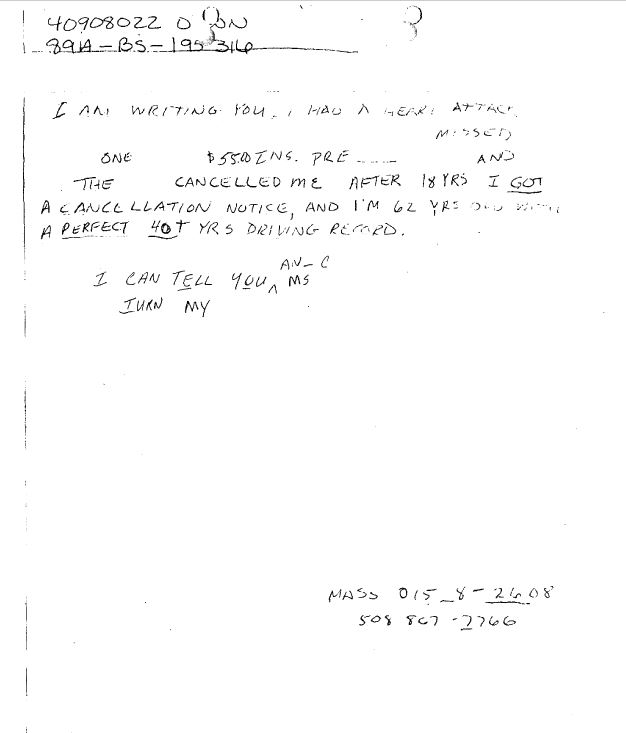 40908022 D
89A-BS-195316
I AM WRITING YOU, I HAD A HEART ATTACK,
MISSED
ONE $5500 INS. PRE AND
THE CANCELLED ME AFTER 18 YRS I GOT
A CANCELLATION NOTICE, AND I'M 62 YRS OLD WITH
A PERFECT 40+ YRS DRIVING RECORD.
AN-C
I CAN TELL YOU MS
TURN MY
MASS 015_8-2608
508 867-2766